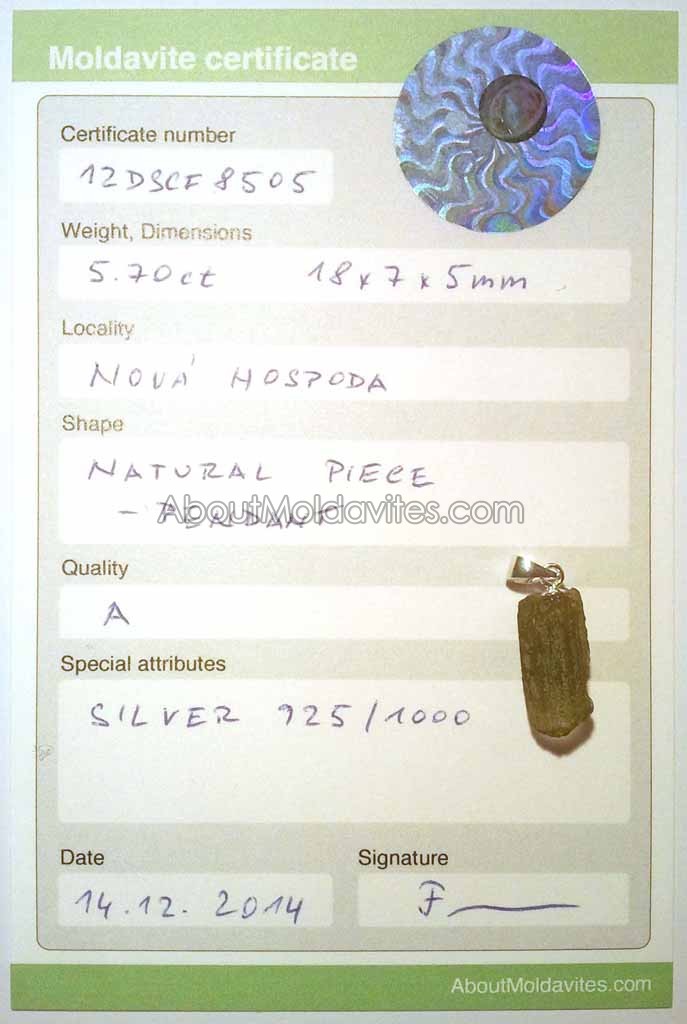 Moldavite certificate
Certificate number
12DSCF8505
Weight, Dimensions
5.70ct 18x7x5mm
Locality
NOVÁ HOSPODA
Shape
NATURAL PIECE
- PENDANT
AboutMoldavites.com
Quality
A
Special attributes
SILVER 925/1000
Date Signature
14.12. 2014
AboutMoldavites.com